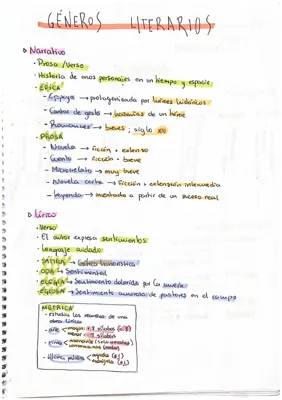 GÉNEROS LITERARIOS
Narrativo
- Prosa / Verso
- Historia de unos personajes en un tiempo y espacio
- ÉPICA
- Epopeya → protagonizada por héroes
- Cantar de gesta → hazañas de un héroe
- Romances → breves; siglo XV
- PROSA
- Novela → ficción + extenso
- Cuento → ficción + breve
- Microrrelato → muy breve
- Novela corta → ficción + extensión intermedia
- Leyenda → inventado a partir de un suceso real
Lírico
- Verso
- El autor expresa sentimientos
- Lenguaje cuidado
- SÁTIRA → Crítica humorística
- ODA → Sentimental
- ELEGÍA → Sentimiento dolorido por la muerte
- ÉGLOGA → Sentimiento amoroso de pastores en el campo
MÉTRICA
- estudia los recursos de una
obra lírica
- arte mayor + 8 sílabas
menor - 8 sílabas
- rima
- última palabra aguda (+1)
esdrújula (-1)